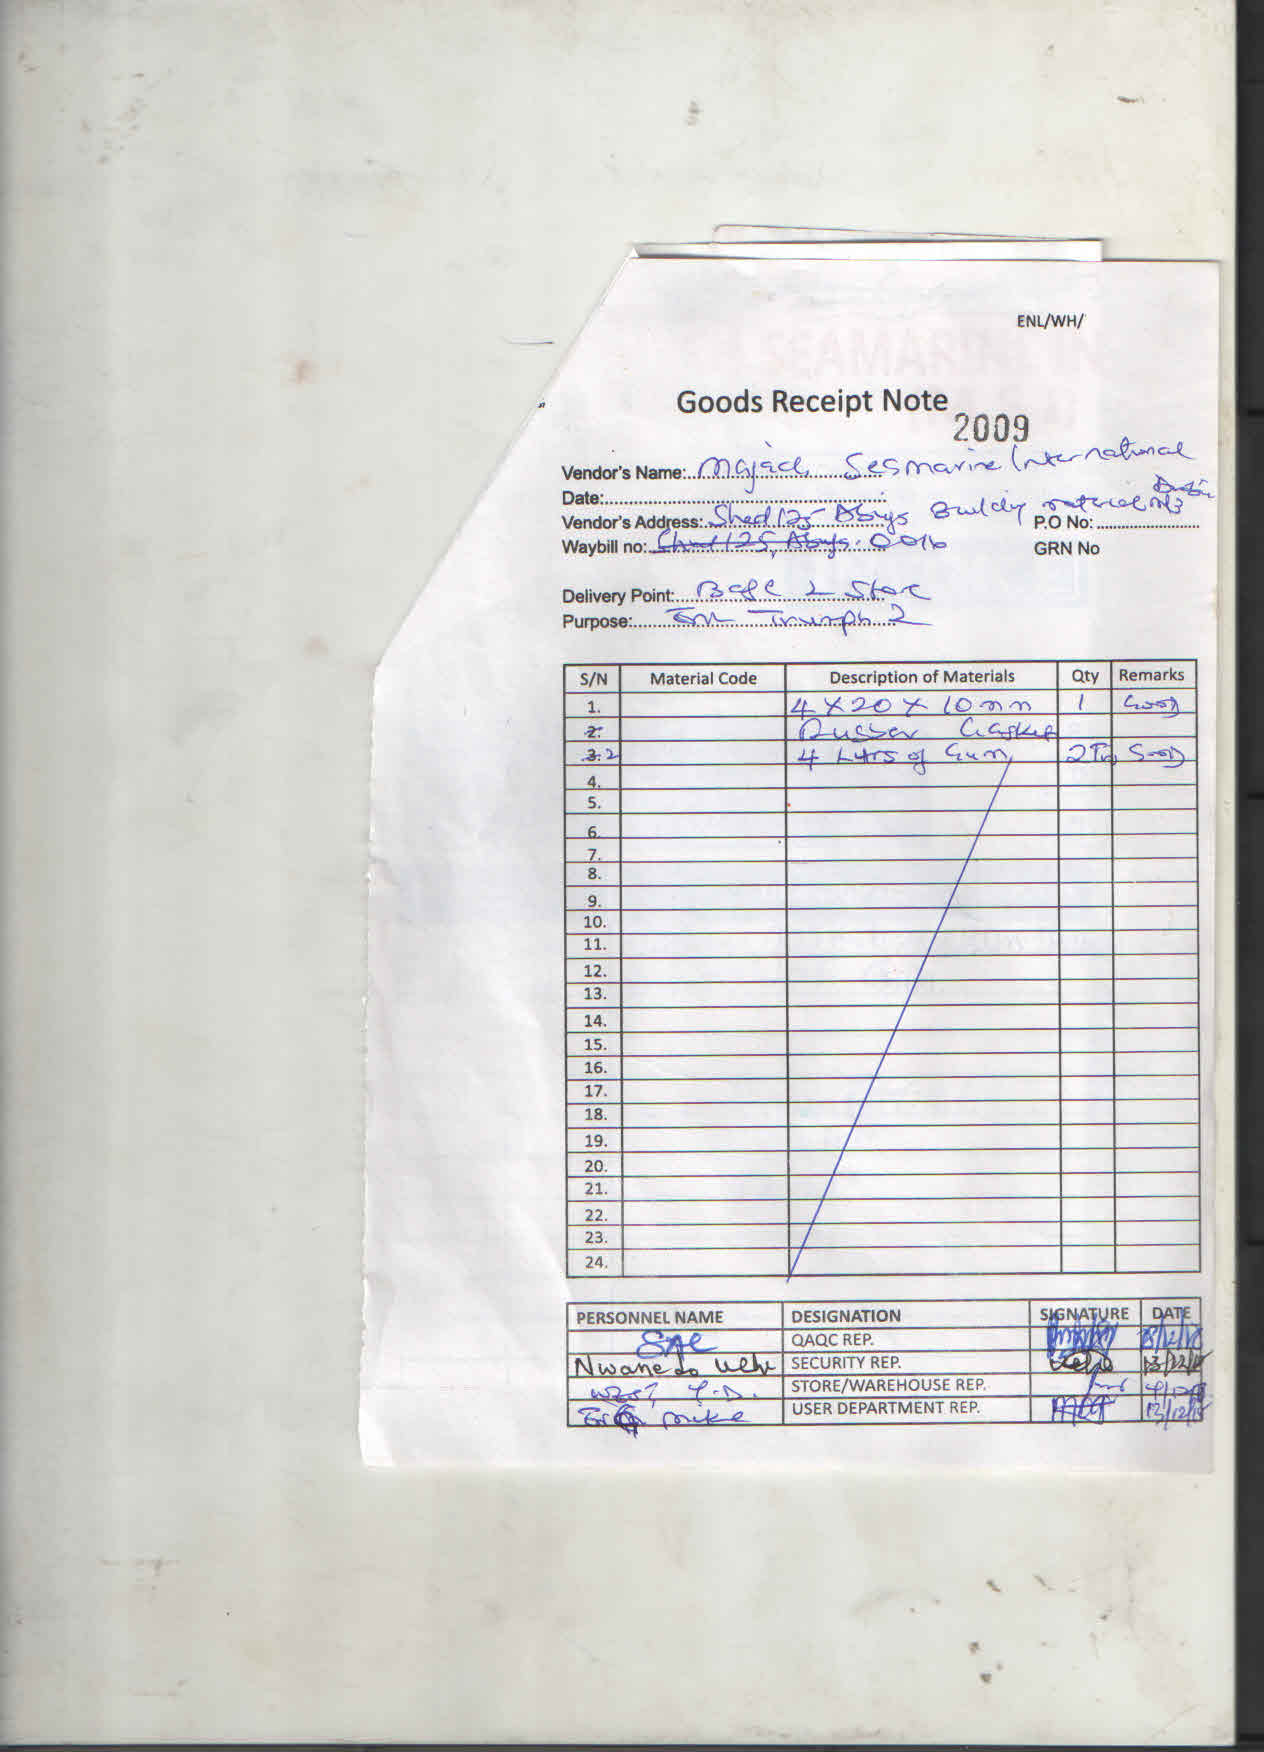 ENL/WH/
Goods Receipt Note
2009
Vendor's Name: Majach Seamarine International
Date:
Vendor's Address: Shed 125 material
P.O No:
Waybill no: 0016
GRN No
Delivery Point: Base 2 Store
Purpose: Triumph 2
S/N Material Code Description of Materials Qty Remarks
1. 4 X 20 X 10 mm 1 Good
2. Rubber Gasket
3. 2 4 Ltrs of Gum 2 Good
4.
5.
6.
7.
8.
9.
10.
11.
12.
13.
14.
15.
16.
17.
18.
19.
20.
21.
22.
23.
24.
PERSONNEL NAME DESIGNATION SIGNATURE DATE
QAQC REP.
SECURITY REP.
STORE/WAREHOUSE REP.
mike USER DEPARTMENT REP. 13/12/18